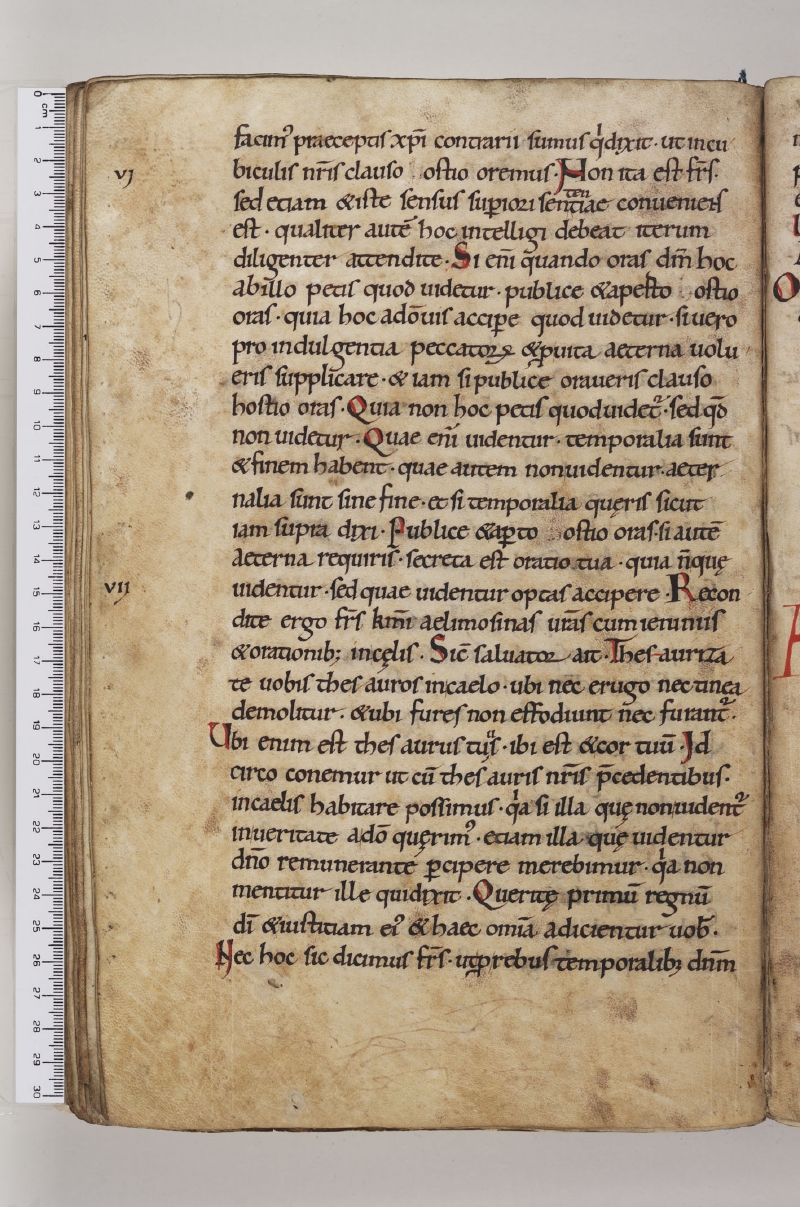 facim᷒ praeceptis xp̄i contrarii sumus qd̓ dixit · ut in cu
vj
biculis nr̄is clauso ostio oremus · Non ita est fr̄s ·
sed etiam & iste sensus superiori sententiae conueniens
est · qualiter autē hoc intelligi debeat iterum
diligenter attendite · Si eni̅ quando oras dn̄m hoc
ab illo petis quod uidetur · publice & apesto ostio
oras · quia hoc a dō uis accipe quod uidetur · si uero
pro indulgentia peccatoꝝ & ꝓ uita aeterna uolu
eris supplicare · & iam si publice oraueris clauso
hostio oras · Quia non hoc petis quod uidet᷒ · sed qd̄
non uidetur · Quae eni̅ uidentur · temporalia sunt
& finem habent · quae autem non uidentur · aeter
nalia sunt sine fine · et si temporalia queris sicut
iam supra dixi · Publice & aꝑto ostio oras · si autē
aeterna requiris · secreta est oratio tua · quia n̄ quę
vii
uidentur · sed quae uidentur optas accipere · Recon
dite ergo fr̄s km̄i aelimosinas ur̄as cum ieiuniis
& orationib; in cęlis · Sic̄ saluator ait · Thesauriza
te uobis thesauros in caelo · ubi nec erugo nec tinea
demolitur · & ubi fures non effodiunt nec furant᷒ ·
Ubi enim est thesaurus tuus · ibi est & cor tuū · Id
circo conemur ut cū thesauris nr̄is p̄cedentibus ·
in caelis habitare possimus · qa̓ si illa quę non uident᷒
in ueritate a dō querim᷒ · etiam illa quę uidentur
dn̄o remunerante ꝑcipere merebimur · qa̓ non
mentitur ille qui dixit · Querite primū regnū
dī & iustitiam ei᷒ & haec om̄ia adicientur uob̄ ·
Nec hoc sic dicimus fr̄s · ut p rebus temporalib; dn̄m